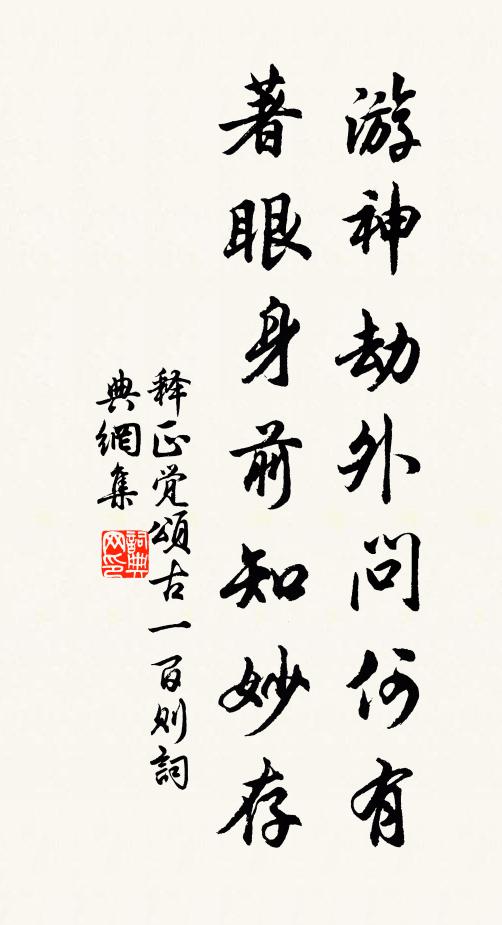 游神劫外问何有
著眼身前知妙存
释正觉颂古一百则詞
典網集
詞典网印